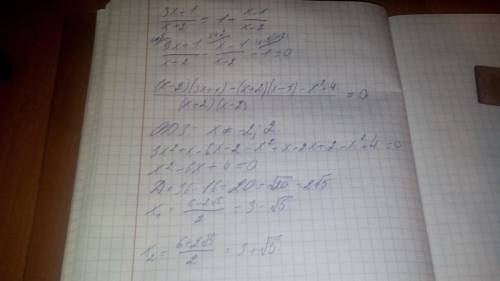 (3x+1)/(x+2) = 1 + (x-1)/(x-2)
(3x+1)/(x+2) - (x-1)/(x-2) - 1 = 0
((x-2)(3x+1) - (x+2)(x-1) - x²+4)/((x+2)(x-2)) = 0
x ≠ -2; 2
3x²+x-6x-2-x²+x-2x+2-x²+4=0
x²-6x+4=0
D=36-16=20=√20=2√5
x₁ = (6-2√5)/2 = 3-√5
x₂ = (6+2√5)/2 = 3+√5